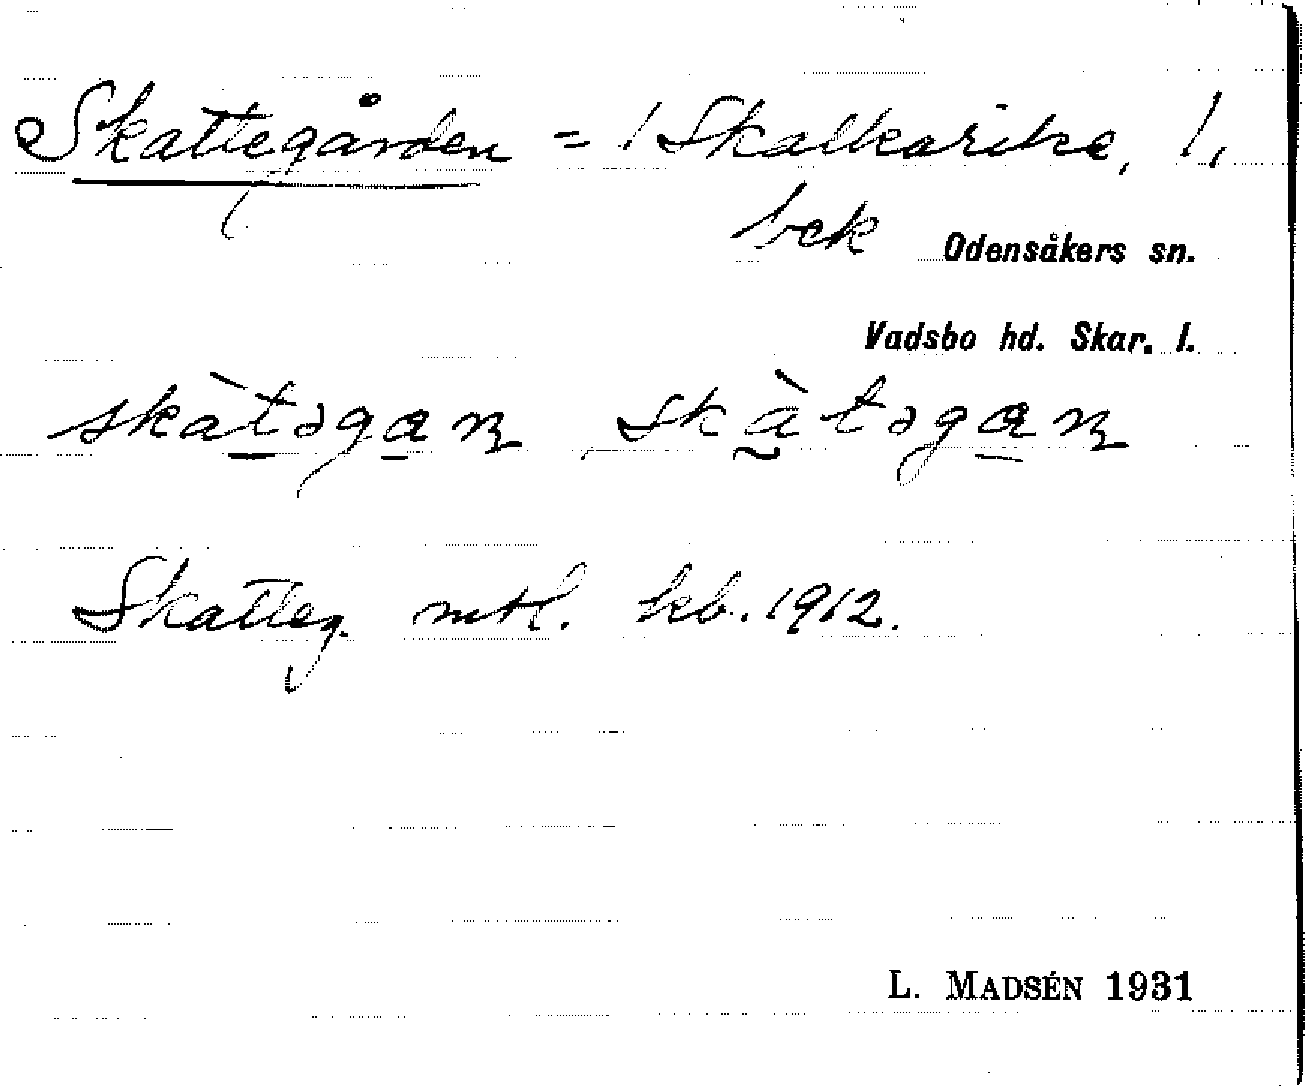 Skattegården = /Skalkarike, 1,
bck Odensåkers sn.
Vadsbo hd. Skar. l.
skàtəgan, skàtəgan
Skatteg. mtl. kb. 1912.
L. MADSÉN 1931